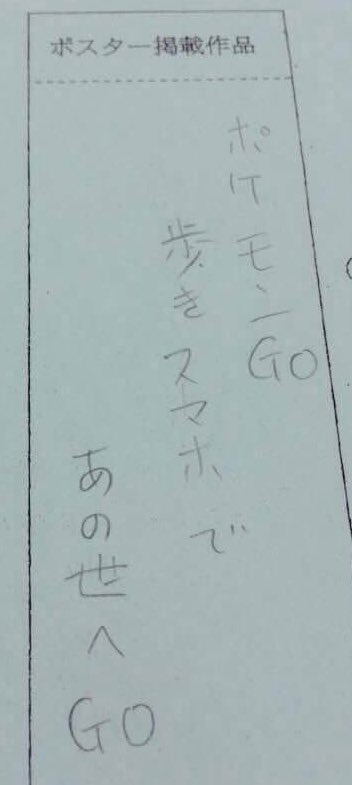 ポスター掲載作品
ポケモンGO
歩きスマホで
あの世へGO